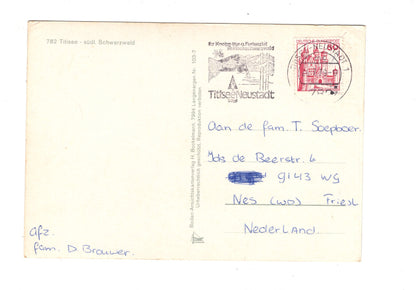 782 Titisee - südl. Schwarzwald
für Kneipp-Kur u. Freizeit
Titisee-Neustadt
Boden Ansichtskartenverlag H. Bockelmann, 7994 Langenargen Nr. 103-2
Urheberrechtlich geschützt. Reproduktion verboten.
60
Aan de fam. T. Soepboer.
Ids de Beerstr. 4
9143 WG
Nes (WD) Friesl
Nederland.
afz.
fam. D. Brouwer.